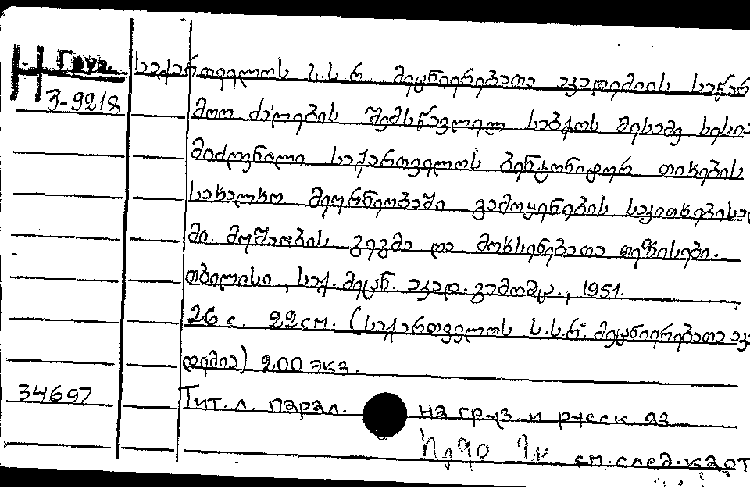 Груз.
З-9218
საქართველოს ს.ს.რ. მეცნიერებათა აკადემიის საწარ
მოო ძალების შემსწავლელი საბჭოს მესამე სესია
მიძღვნილი საქართველოს ბენტონიტურ თიხების
სახალხო მეურნეობაში გამოყენების საკითხებისად
მი მუშაობის გეგმა და მოხსენებათა თეზისები.
თბილისი, საქ. მეცნ. აკად. გამომც., 1951.
26 с. 22 см. (საქართველოს ს.ს.რ. მეცნიერებათა აკა
დემია) 200 экз.
34697 Тит. л. парал. на груз. и русск. яз
см. след. карт